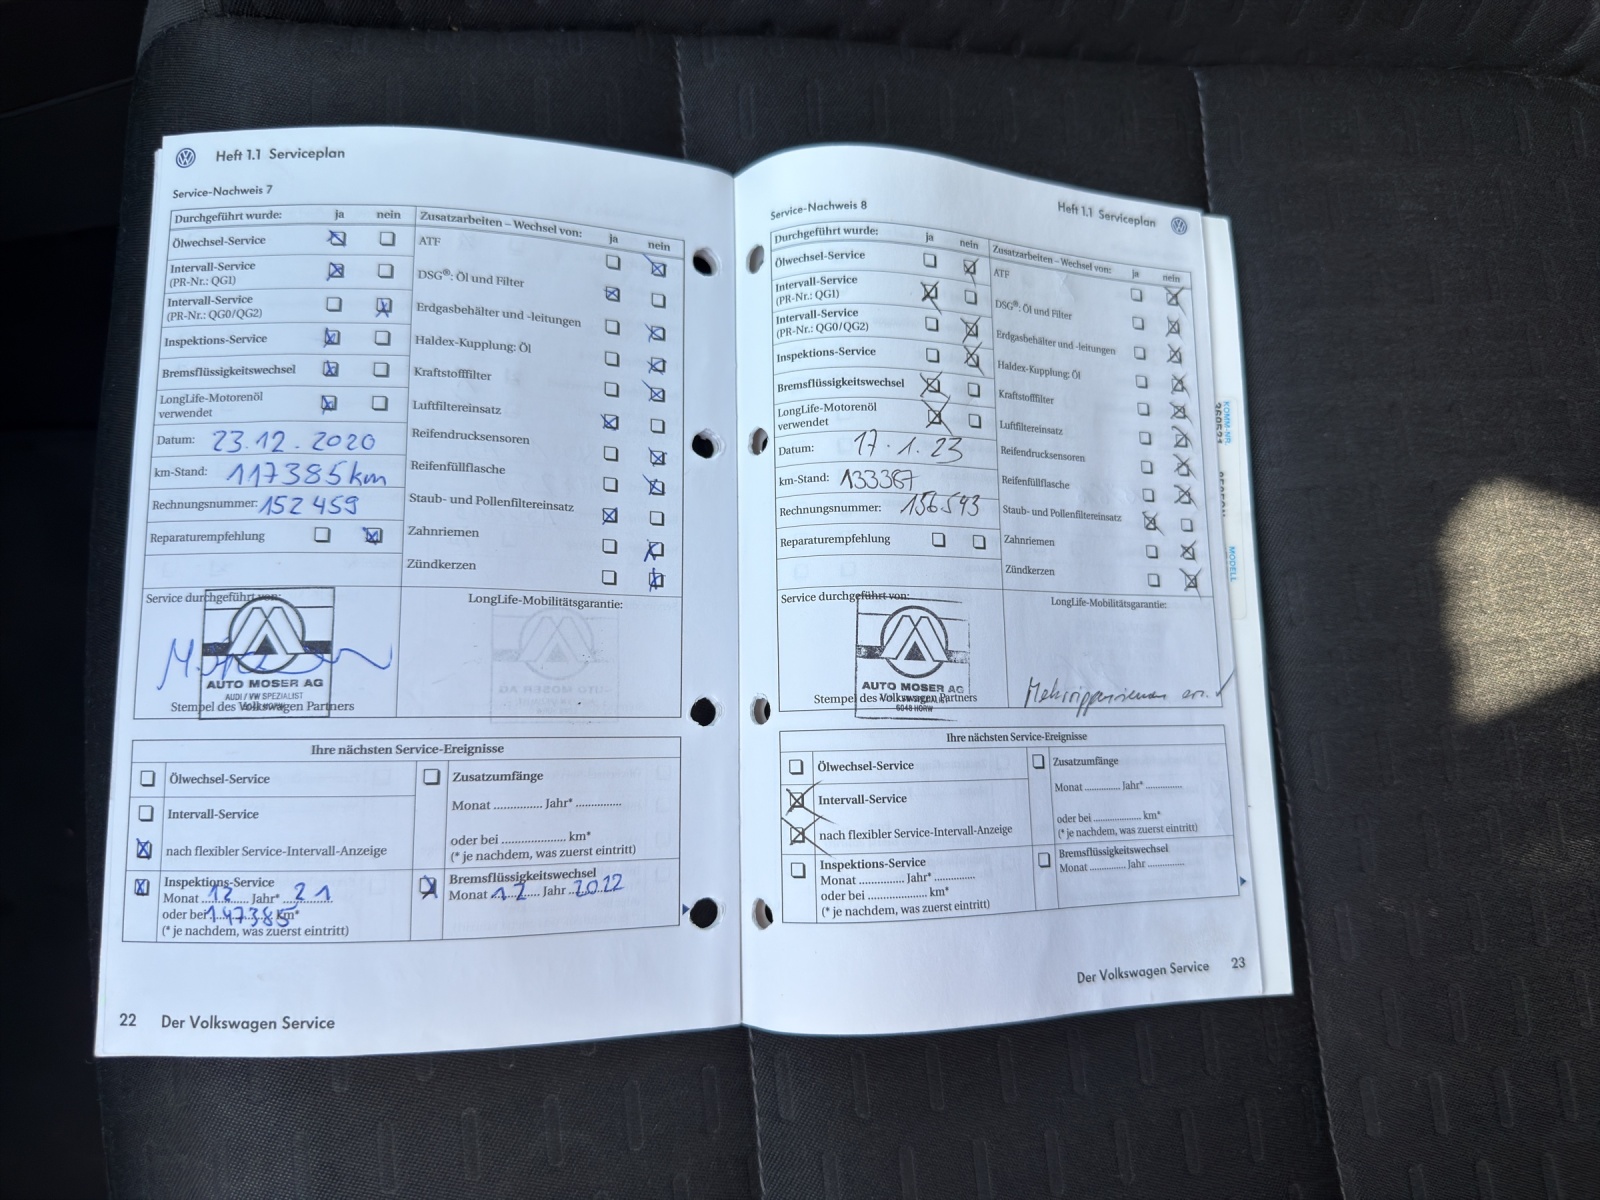 Heft 1.1 Serviceplan
Service-Nachweis 7
Durchgeführt wurde: ja nein
Ölwechsel-Service
Intervall-Service
(PR-Nr.: QG1)
Intervall-Service
(PR-Nr.: QG0/QG2)
Inspektions-Service
Bremsflüssigkeitswechsel
LongLife-Motorenöl
verwendet
Datum: 23.12.2020
km-Stand: 117385km
Rechnungsnummer: 152459
Reparaturempfehlung
Zusatzarbeiten – Wechsel von: ja nein
ATF
DSG®: Öl und Filter
Erdgasbehälter und -leitungen
Haldex-Kupplung: Öl
Kraftstofffilter
Luftfiltereinsatz
Reifendrucksensoren
Reifenfüllflasche
Staub- und Pollenfiltereinsatz
Zahnriemen
Zündkerzen
Service durchgeführt von:
AUTO MOSER AG
AUDI / VW SPEZIALIST
Stempel des Volkswagen Partners
LongLife-Mobilitätsgarantie:
Ihre nächsten Service-Ereignisse
Ölwechsel-Service
Intervall-Service
nach flexibler Service-Intervall-Anzeige
Inspektions-Service
Monat 12 Jahr* 21
oder bei 147385 km*
(* je nachdem, was zuerst eintritt)
Zusatzumfänge
Monat ............... Jahr* ..............
oder bei .................... km*
(* je nachdem, was zuerst eintritt)
Bremsflüssigkeitswechsel
Monat 12 Jahr 2022
22 Der Volkswagen Service
Heft 1.1 Serviceplan
Service-Nachweis 8
Durchgeführt wurde: ja nein
Ölwechsel-Service
Intervall-Service
(PR-Nr.: QG1)
Intervall-Service
(PR-Nr.: QG0/QG2)
Inspektions-Service
Bremsflüssigkeitswechsel
LongLife-Motorenöl
verwendet
Datum: 17.1.23
km-Stand: 133387
Rechnungsnummer: 156543
Reparaturempfehlung
Zusatzarbeiten – Wechsel von: ja nein
ATF
DSG®: Öl und Filter
Erdgasbehälter und -leitungen
Haldex-Kupplung: Öl
Kraftstofffilter
Luftfiltereinsatz
Reifendrucksensoren
Reifenfüllflasche
Staub- und Pollenfiltereinsatz
Zahnriemen
Zündkerzen
Service durchgeführt von:
AUTO MOSER AG
6048 HORW
Stempel des Volkswagen Partners
LongLife-Mobilitätsgarantie:
Mehrrippenriemen
Ihre nächsten Service-Ereignisse
Ölwechsel-Service
Intervall-Service
nach flexibler Service-Intervall-Anzeige
Inspektions-Service
Monat .............. Jahr* .............
oder bei .................... km*
(* je nachdem, was zuerst eintritt)
Zusatzumfänge
Monat ............. Jahr* .............
oder bei .................. km*
(* je nachdem, was zuerst eintritt)
Bremsflüssigkeitswechsel
Monat ............. Jahr .............
Der Volkswagen Service 23
KOMM-NR.
MODELL